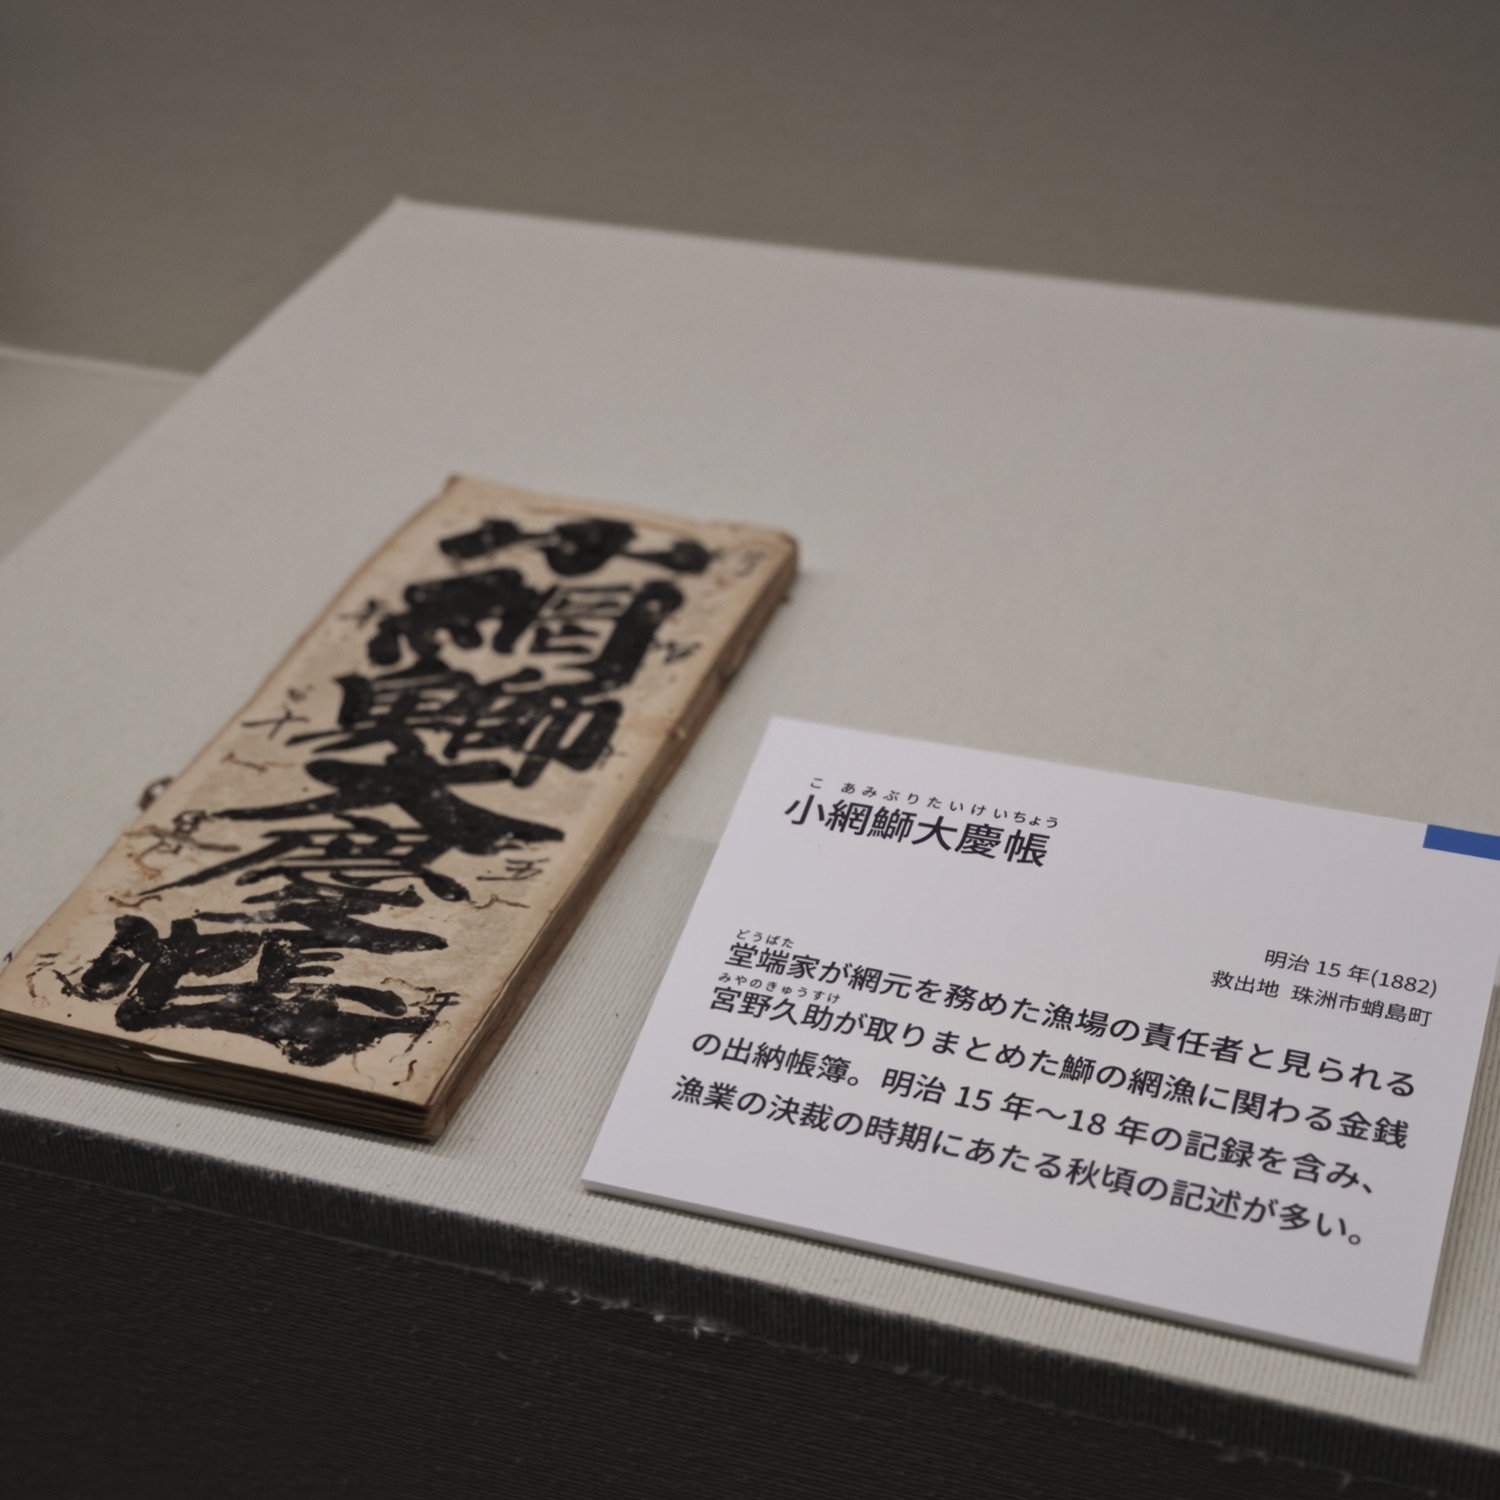 小網鰤大慶帳
こ あみぶりたいけいちょう
小網鰤大慶帳
明治 15 年(1882)
救出地 珠洲市蛸島町
どうばた
堂端家が網元を務めた漁場の責任者と見られる
みやのきゅうすけ
宮野久助が取りまとめた鰤の網漁に関わる金銭
の出納帳簿。明治 15 年～18 年の記録を含み、
漁業の決裁の時期にあたる秋頃の記述が多い。